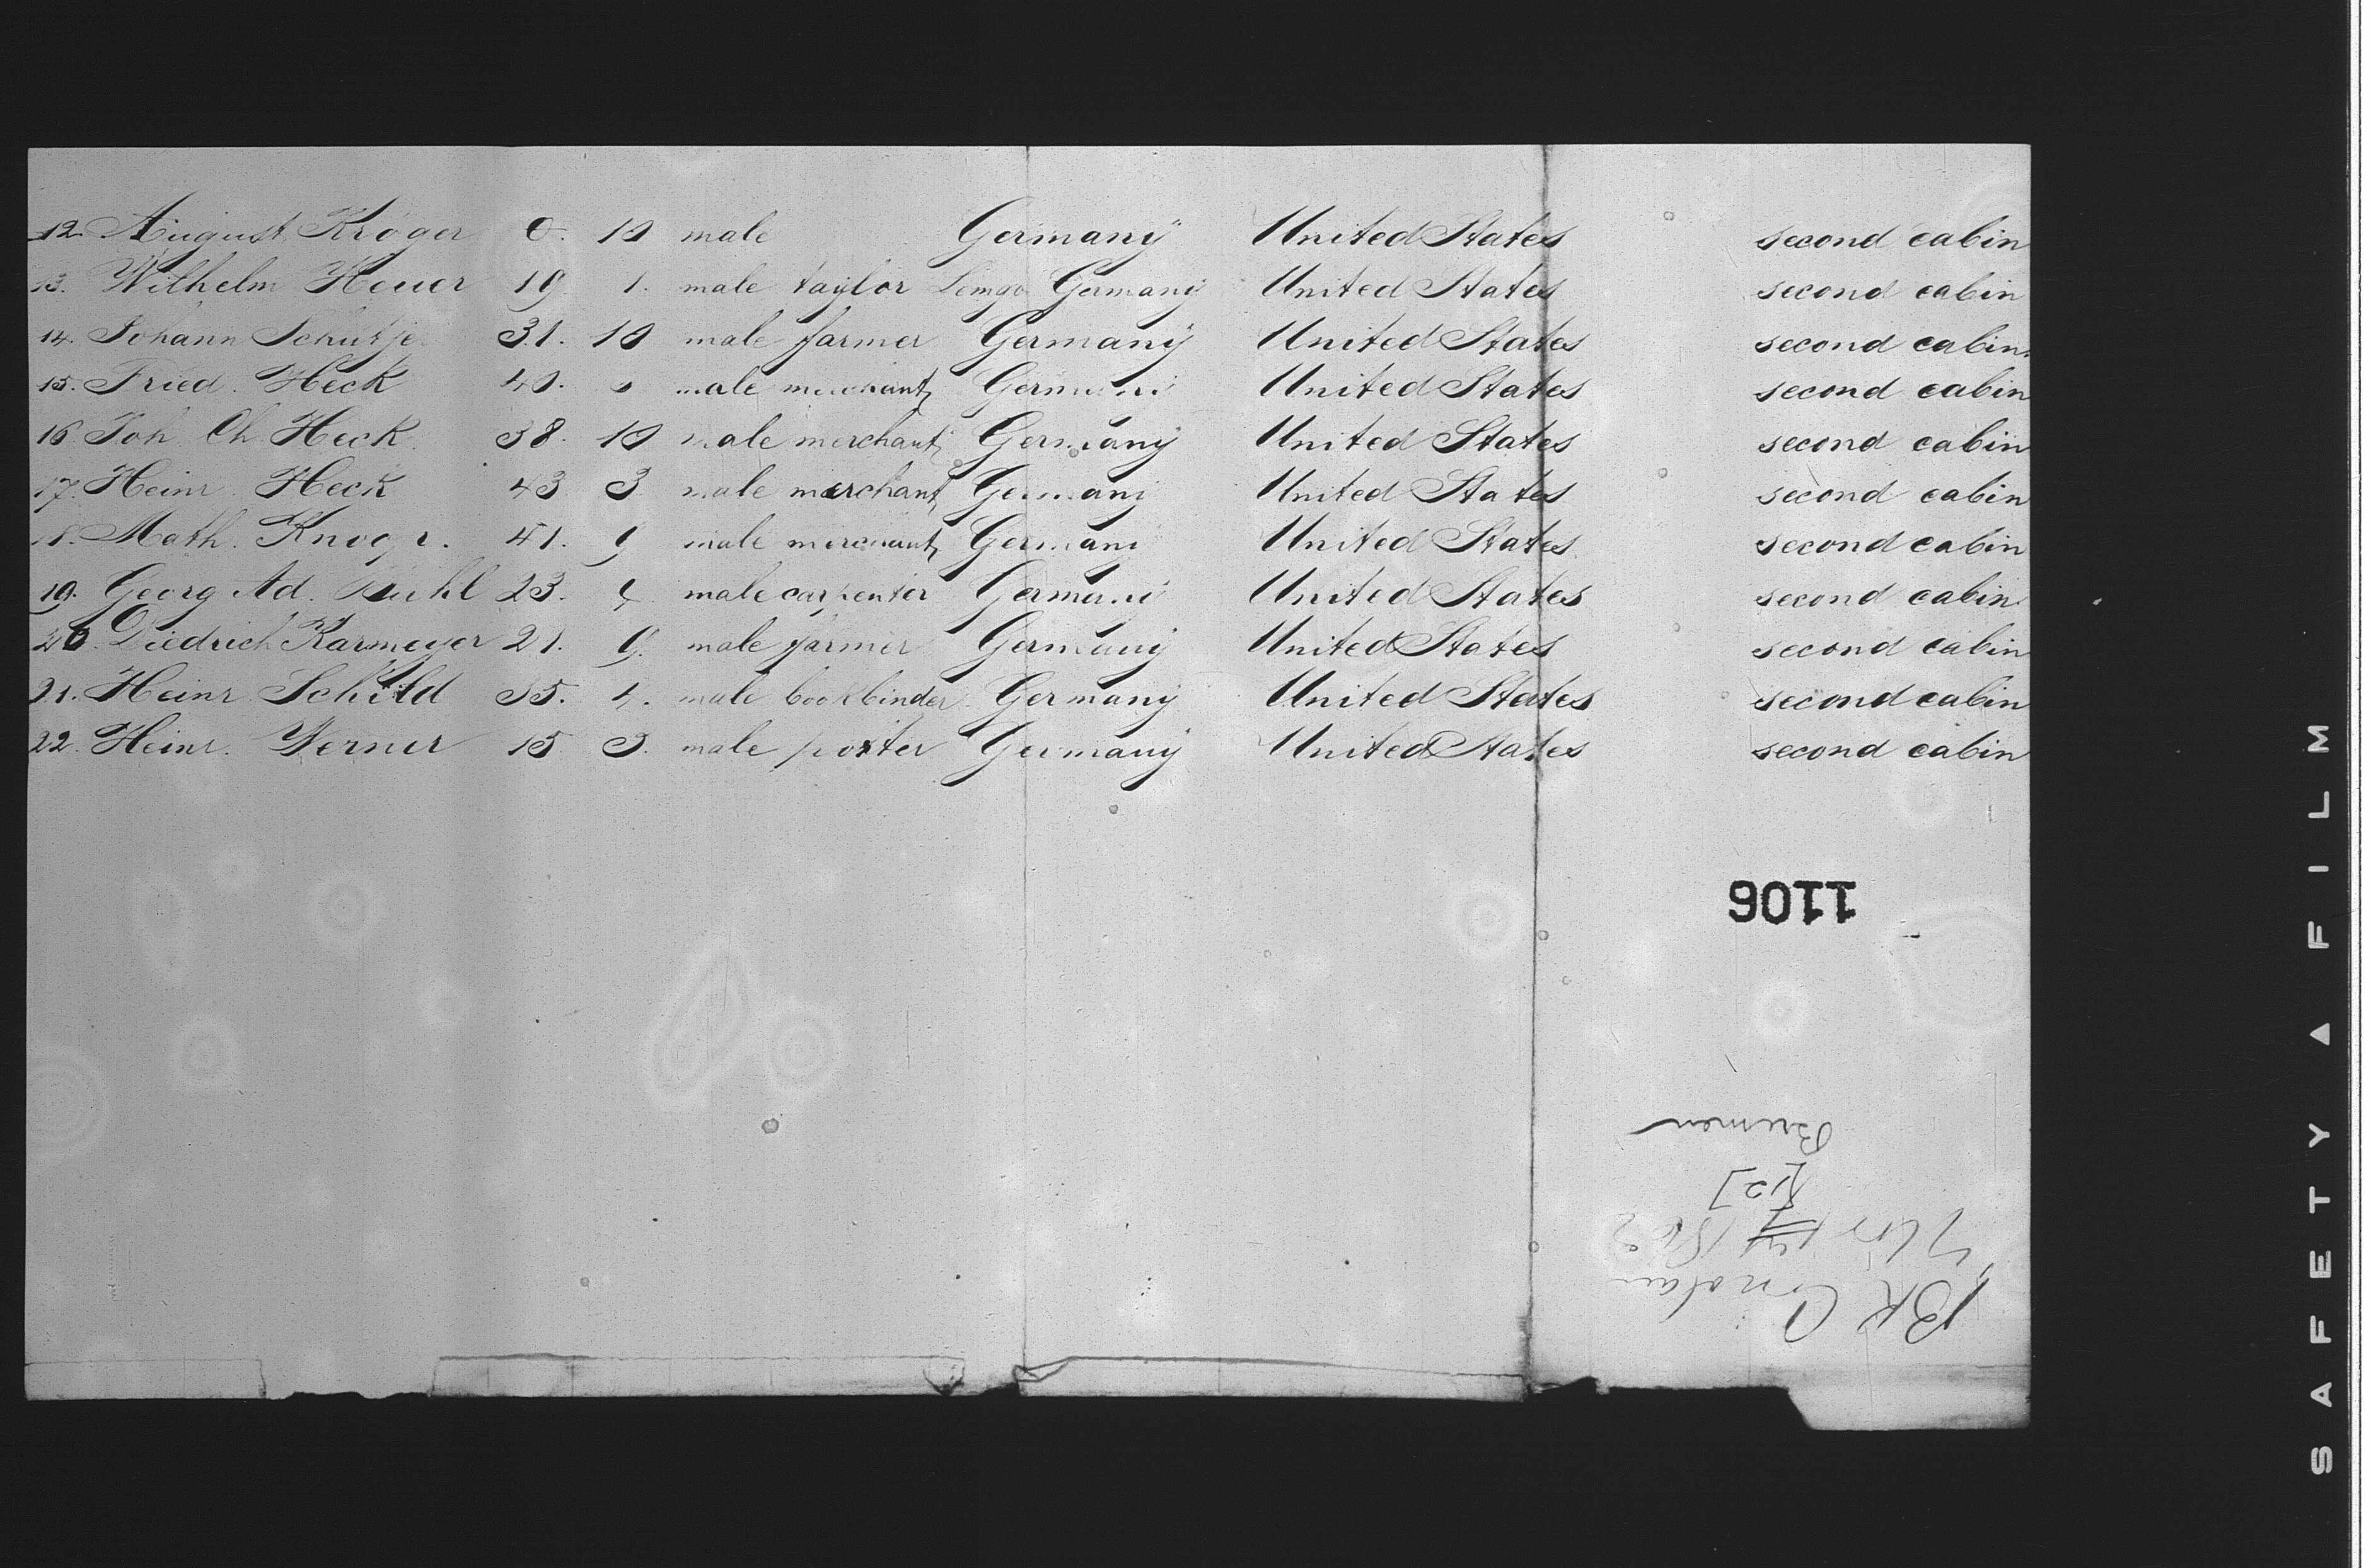 12. August Kröger 0. 10 male Germany United States second cabin
13. Wilhelm Heuer 19 1. male taylor Lemgo Germany United States second cabin
14. Johann Schutje 31. 10 male farmer Germany United States second cabin
15. Fried. Heck 40. male merchant, Germany United States second cabin
16 Joh. Ch. Heck 38. 10 male merchant, Germany United States second cabin
17. Heinr. Heck 43 3 male merchant, Germany United States second cabin
18. Math. 41. 9 male merchant, Germany United States second cabin
19. Georg Ad. 23. 4 male carpenter Germany United States second cabin
20. Diedrich Karmeyer 21. 9. male farmer Germany United States second cabin
21. Heinr Schild 35. 4. male bookbinder Germany United States second cabin
22. Heinr. Werner 15 3. male porter Germany United States second cabin
1106
BK
[12]
Bremen
SAFETY ▲ FILM